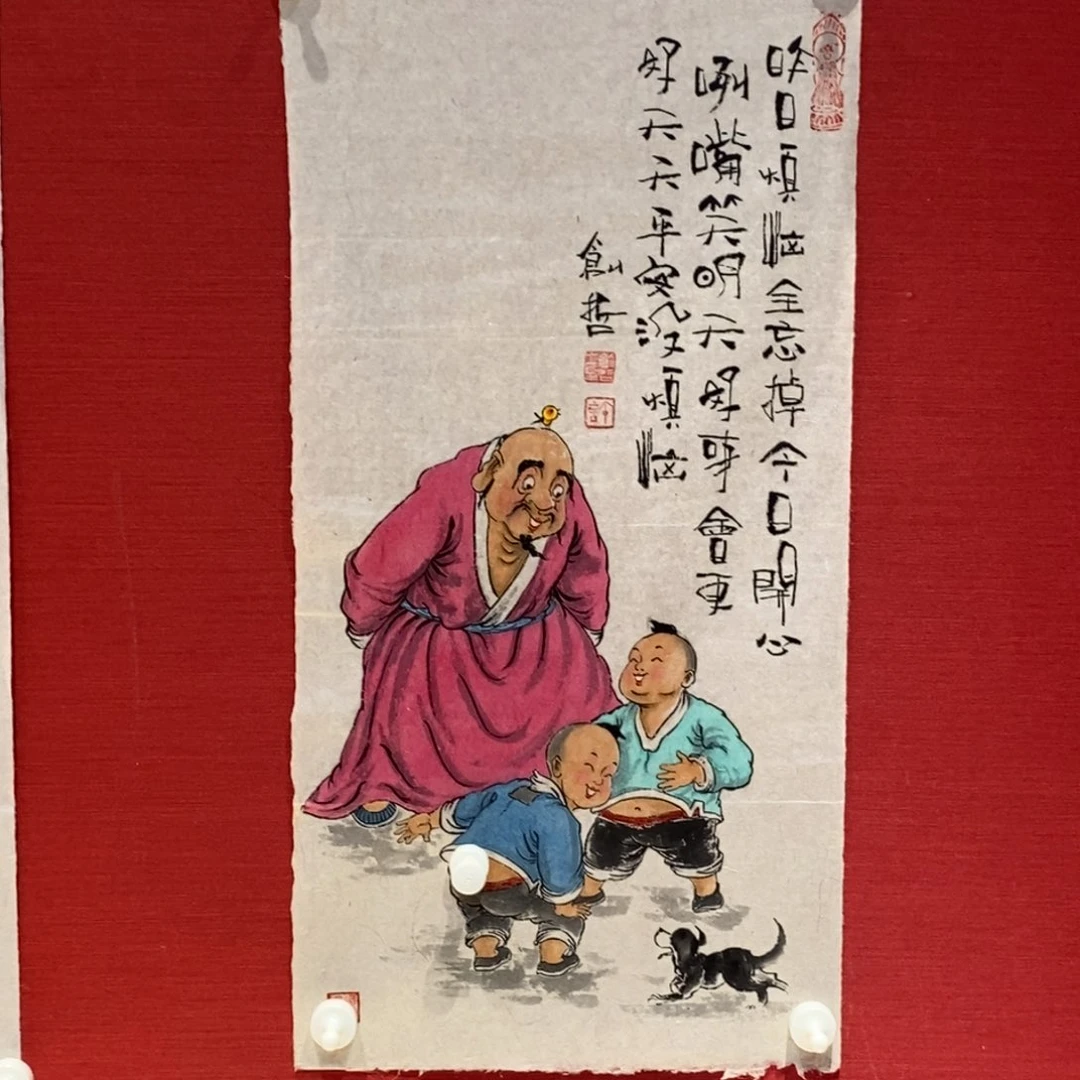 昨日煩恼全忘掉今日開心
咧嘴笑明天好事會更
好天天平安沒煩恼
創哲